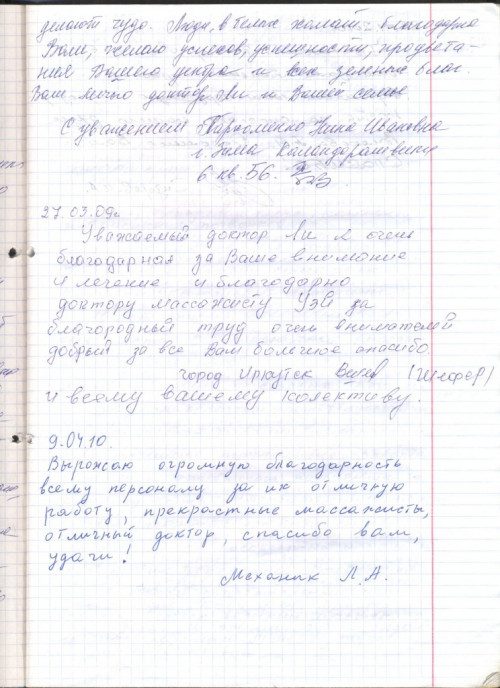 делают чудо. Люди в белых халатах благодарна
Вам, желаю успехов, успешности, процвета-
ния Вашего центра и всех земных благ.
Вам лично доктор Ли и Вашей семье
С уважением Пархоменко Нина Ивановна
г. Зима
6 кв. 56.
27.03.09г
Уважаемый доктор Ли я очен
благодарная за Ваше внимание
и лечение и благодарно
доктору массажисту Узй за
благородный труд очен внимателй
добрый за все Вам болечное спасибо
город Иркутск (Шефер)
и всему вашему колективу.
9.04.10.
Выражаю огромную благодарность
всему персоналу за их отличную
работу, прекрастные массажисты,
отличный доктор, спасибо вам,
удачи!
Механик Л.А.